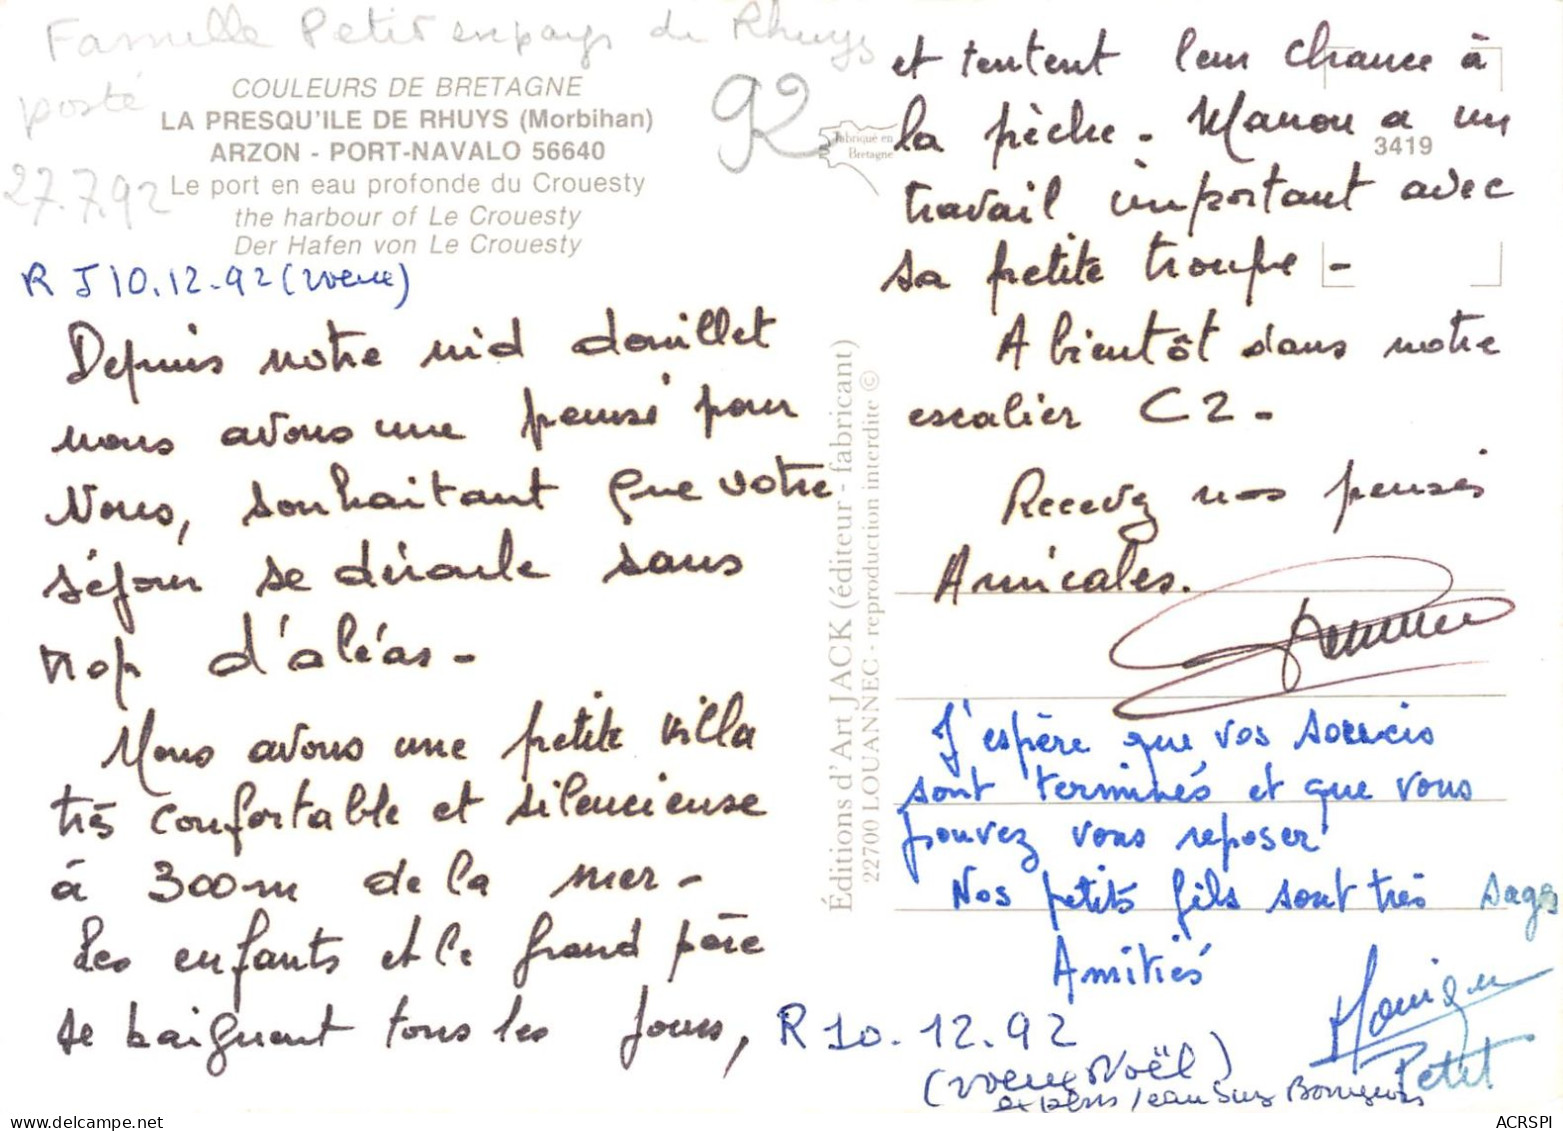 Famille Petit en pays de Rhuys
posté
27.7.92
92
COULEURS DE BRETAGNE
LA PRESQU'ILE DE RHUYS (Morbihan)
ARZON - PORT-NAVALO 56640
Le port en eau profonde du Crouesty
the harbour of Le Crouesty
Der Hafen von Le Crouesty
R J 10.12.92 (voeux)
Depuis notre nid douillet
nous avons une pensé pour
Vous, souhaitant que votre
séjour se déroule sans
trop d'aléas -
Nous avons une petite villa
très confortable et silencieuse
à 300m de la mer -
Les enfants et le grand père
se baignent tous les jours,
Fabriqué en
Bretagne
3419
Éditions d'Art JACK (éditeur - fabricant)
22700 LOUANNEC - reproduction interdite ©
et tentent leur chance à
la pèche - Manon a un
travail important avec
sa petite troupe -
A bientôt dans notre
escalier C2 -
Recevez nos pensés
Amicales.
J'espère que vos soucis
sont terminés et que vous
pouvez vous reposer
Nos petits fils sont très sages
Amitiés
Petit
R 10.12.92
(voeux Noël)
Jean Suz
ACRSPI